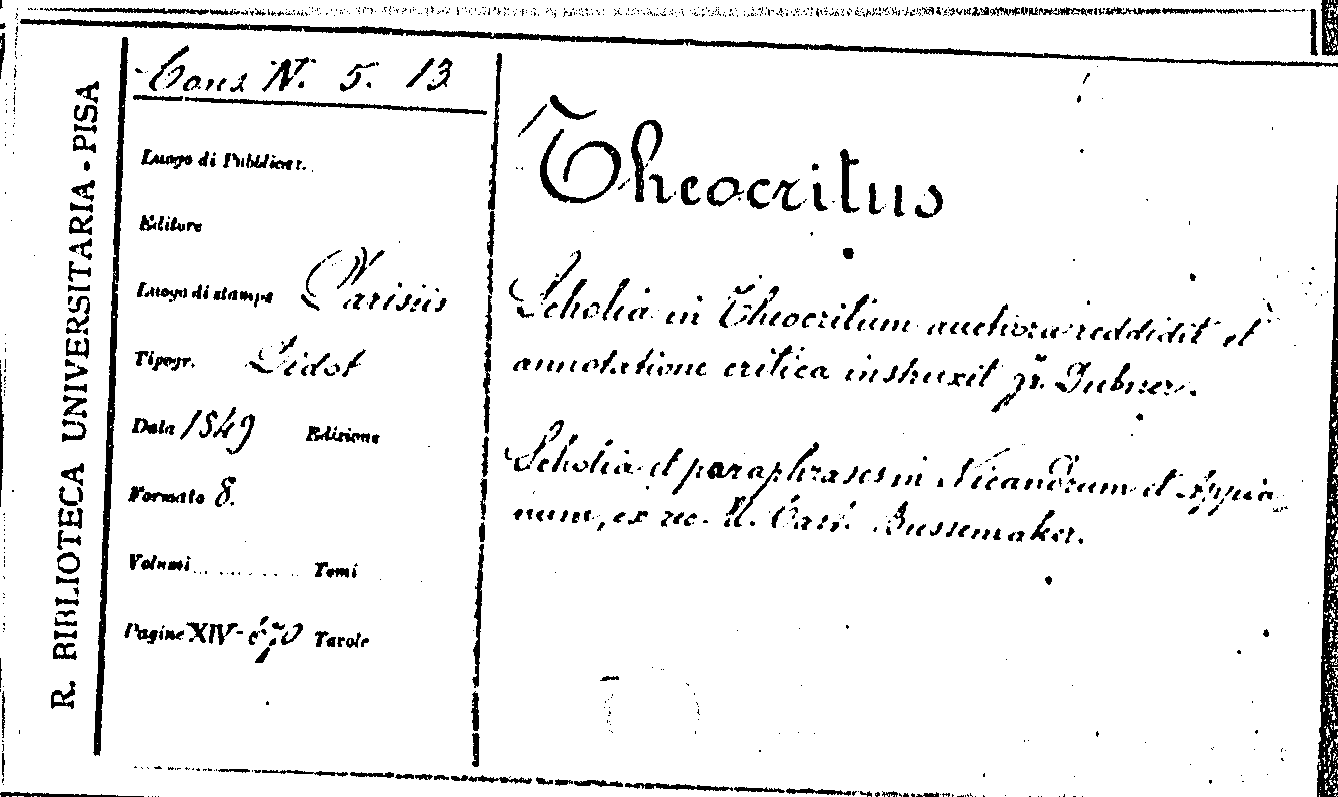 R. BIBLIOTECA UNIVERSITARIA - PISA
Cons N. 5. 13
Luogo di Pubblicaz.
Editore
Luogo di stampa Parisiis
Tipogr. Didot
Data 1849 Edizione
Formato 8.
Volumi Tomi
Pagine XIV-670 Tavole
Theocritus
Scholia in Theocritum auctiora reddidit et
annotatione critica instruxit Fr. Dubner.
Scholia et paraphrases in Nicandrum et Oppia
num, ex rec. U. Cats Bussemaker.